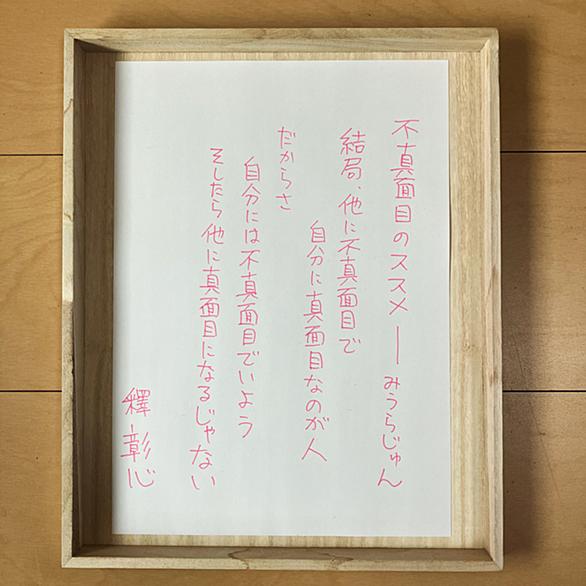 不真面目のススメ ― みうらじゅん
結局、他に不真面目で
自分に真面目なのが人
だからさ
自分には不真面目でいよう
そしたら他に真面目になるじゃない
釋 彰心